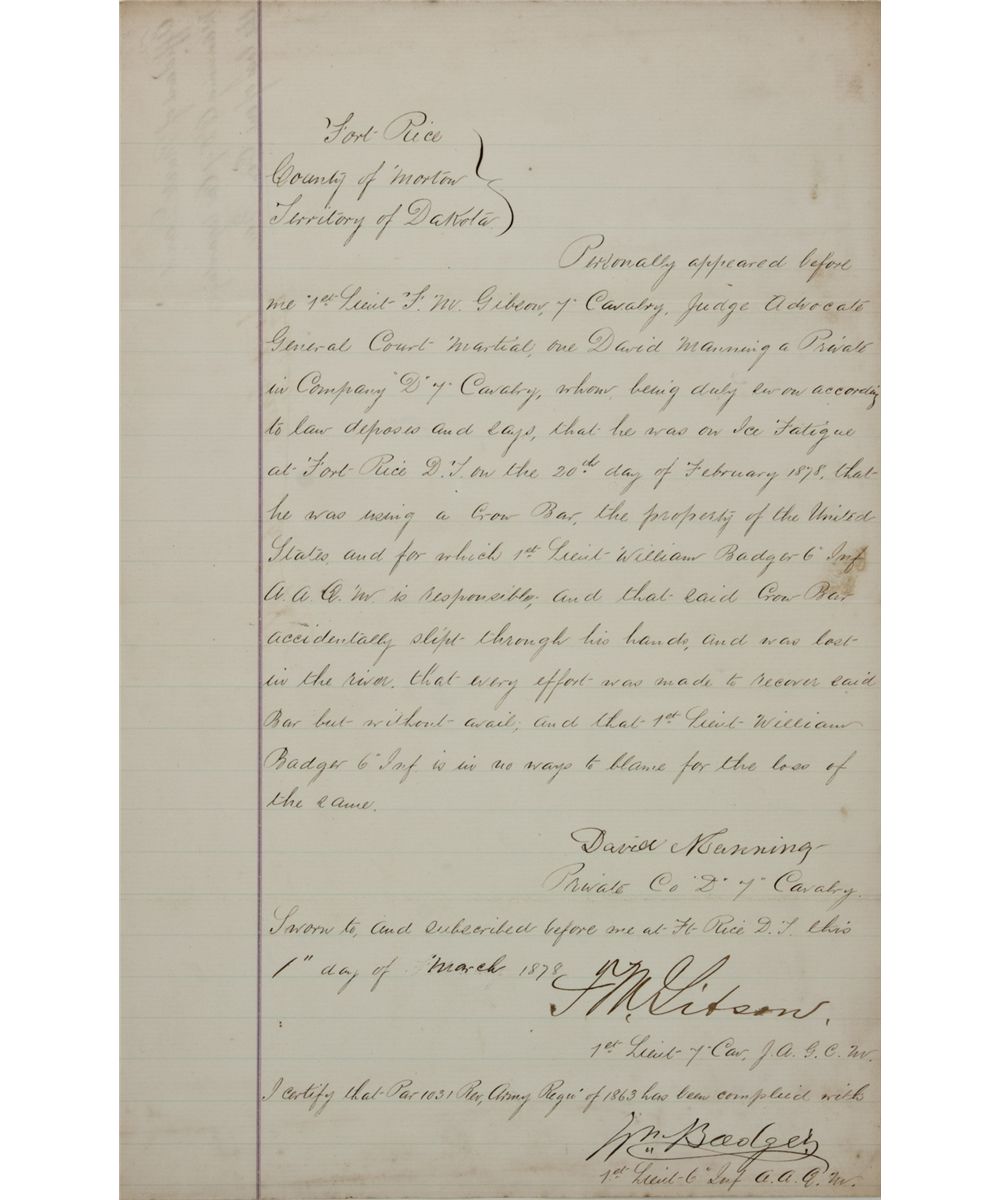 Fort Rice
County of Morton
Territory of Dakota
Personally appeared before
me 1st Lieut F. M. Gibson, 7" Cavalry, Judge Advocate
General Court Martial, one David Manning a Private
in Company "D" 7" Cavalry, whom being duly sworn according
to law deposes and says, that he was on Ice Fatigue
at Fort Rice D.T. on the 20th day of February 1878, that
he was using a Crow Bar, the property of the United
States, and for which 1st Lieut William Badger 6" Inf
A. A. Q. M is responsible, and that said Crow Bar
accidentally slipt through his hands, and was lost
in the river. that every effort was made to recover said
Bar but without avail, and that 1st Lieut William
Badger 6" Inf. is in no ways to blame for the loss of
the same.
David Manning
Private Co "D" 7" Cavalry.
Sworn to, and subscribed before me at Ft Rice D.T. this
1" day of March 1878
F. M. Gibson.
1st Lieut 7" Cav. J. A. G. C. M.
I certify that Par 1031 Rev, Army Regn of 1863 has been complied with
Wm Badger
1st Lieut 6" Inf A. A. Q. M.